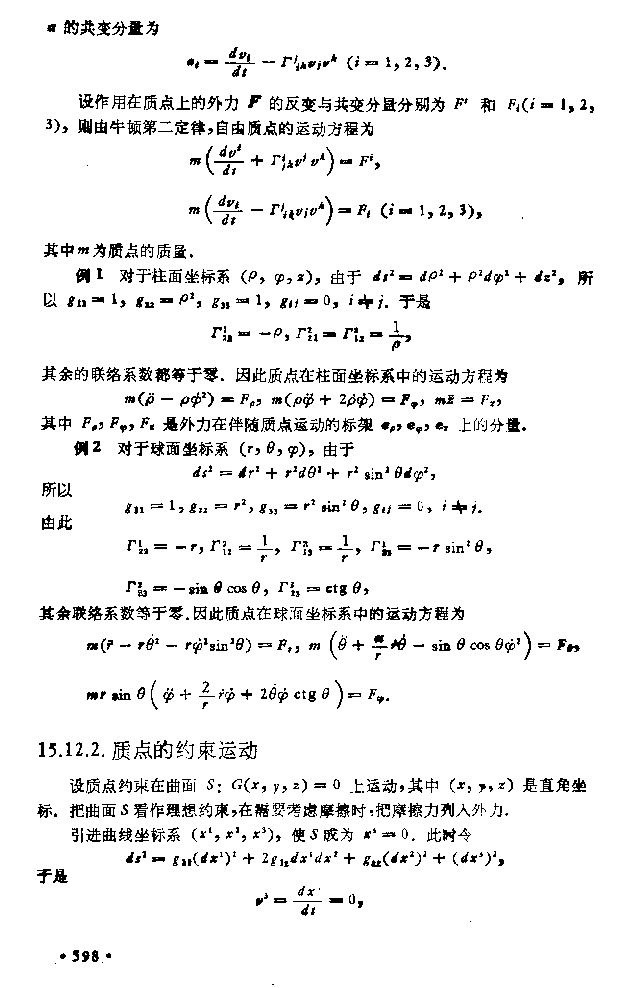 a 的共变分量为
a_i = dv_i/dt − Γ^j_{ik}v_jv^k (i = 1, 2, 3).
设作用在质点上的外力 F 的反变与共变分量分别为 F^i 和 F_i(i = 1, 2,
3), 则由牛顿第二定律,自由质点的运动方程为
m(dv^i/dt + Γ^i_{jk}v^j v^k) = F^i,
m(dv_i/dt − Γ^j_{ik}v_jv^k) = F_i (i = 1, 2, 3),
其中m为质点的质量.
例1 对于柱面坐标系 (ρ, φ, z), 由于 ds² = dρ² + ρ²dφ² + dz², 所
以 g₁₁ = 1, g₂₂ = ρ², g₃₃ = 1, g_{ij} = 0, i ≠ j. 于是
Γ¹₂₂ = −ρ, Γ²₂₁ = Γ²₁₂ = 1/ρ,
其余的联络系数都等于零. 因此质点在柱面坐标系中的运动方程为
m(ρ̈ − ρφ̇²) = F_ρ, m(ρφ̈ + 2ρ̇φ̇) = F_φ, mz̈ = F_z,
其中 F_ρ, F_φ, F_z 是外力在伴随质点运动的标架 e_ρ, e_φ, e_z 上的分量.
例2 对于球面坐标系 (r, θ, φ), 由于
ds² = dr² + r²dθ² + r² sin² θdφ²,
所以
g₁₁ = 1, g₂₂ = r², g₃₃ = r² sin² θ, g_{ij} = 0, i ≠ j.
由此
Γ¹₂₂ = −r, Γ²₁₂ = 1/r, Γ³₁₃ = 1/r, Γ¹₃₃ = −r sin² θ,
Γ²₃₃ = −sin θ cos θ, Γ³₂₃ = ctg θ,
其余联络系数等于零.因此质点在球面坐标系中的运动方程为
m(r̈ − rθ̇² − rφ̇²sin²θ) = F_r, m(θ̈ + 2/r ṙθ̇ − sin θ cos θφ̇²) = F_θ,
mr sin θ(φ̈ + 2/r ṙφ̇ + 2θ̇φ̇ ctg θ) = F_φ.
15.12.2. 质点的约束运动
设质点约束在曲面 S: G(x, y, z) = 0 上运动,其中 (x, y, z) 是直角坐
标. 把曲面 S 看作理想约束,在需要考虑摩擦时,把摩擦力列入外力.
引进曲线坐标系 (x¹, x², x³), 使 S 成为 x³ = 0. 此时令
ds² = g₁₁(dx¹)² + 2g₁₂dx¹dx² + g₂₂(dx²)² + (dx³)²,
于是
v³ = dx³/dt = 0,
• 598 •